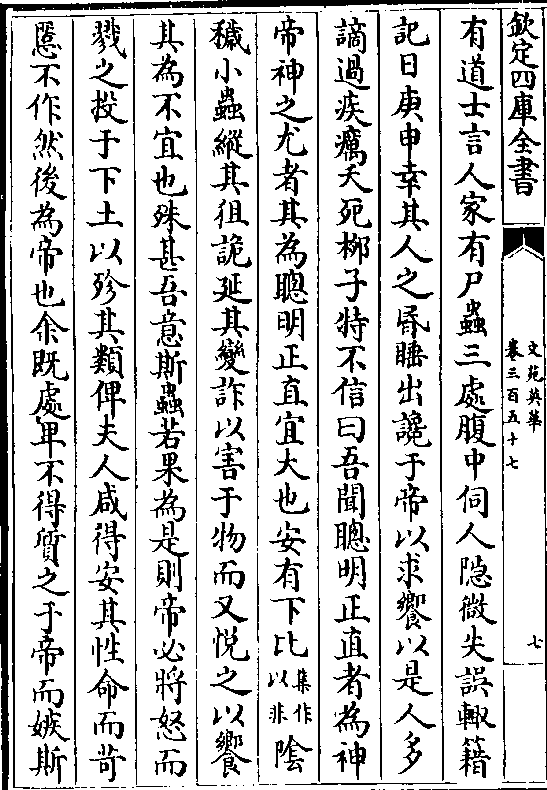 欽定四庫全書
文苑英華
卷三百五十七
七
有道士言人家有尸蟲三處腹中伺人隱微失誤輙籍
記日庚申幸其人之昬睡出讒于帝以求饗以是人多
謫過疾癘夭死栁子特不信曰吾聞聰明正直者為神
帝神之尤者其為聰明正直宜大也安有下比集作以非隂
穢小蟲縱其狙詭延其變詐以害于物而又悦之以饗
其為不宜也殊甚吾意斯蟲若果為是則帝必將怒而
戮之投于下土以殄其類俾夫人咸得安其性命而苛
慝不作然後為帝也余既處卑不得質之于帝而嫉斯